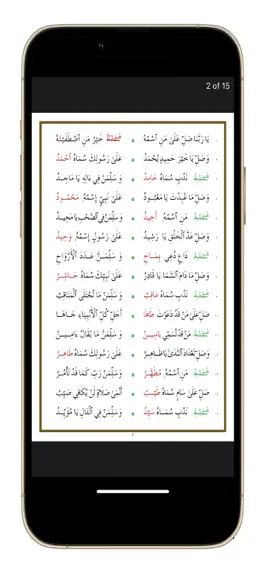 2 of 15
يَا رَبَّنَا صَلِّ عَلَىٰ مَنِ اسْمُهُ مُحَمَّدٌ خَيْرُ مَنِ اصْطَفَيْتَهُ
وَصَلِّ يَا خَيْرَ حَمِيدٍ يُحْمَدُ عَلَىٰ رَسُولِكَ سُمَاهُ أَحْمَدُ
مُحَمَّدٌ نَدْبٌ سُمَاهُ حَامِدُ وَسَلِّمَنْ فِي يَا مَاجِدُ
وَصَلِّ مَا عُبِدْتَ يَا مَعْبُودُ عَلَىٰ نَبِيٍّ إِسْمُهُ مَحْمُودُ
مُحَمَّدٌ مَنِ اسْمُهُ أَحِيدُ وَسَلِّمَنْ فِي الصَّحْبِ يَا مَجِيدُ
وَصَلِّ عَدَّ الْخَلْقِ يَا رَشِيدُ عَلَىٰ رَسُولٍ إِسْمُهُ وَحِيدُ
مُحَمَّدٌ دَاعٍ دُعِي بِمَاحِ وَسَلِّمَنْ عَدَدَ الْأَرْوَاحِ
وَصَلِّ مَا دَامَ السَّمَا يَا قَادِرُ عَلَىٰ نَبِيِّكَ سُمَاهُ حَاشِرُ
مُحَمَّدٌ نَدْبٌ سُمَاهُ عَاقِبُ وَسَلِّمَنْ مَا تُجْتَلَى الْمَنَاقِبُ
صَلِّ عَلَىٰ مَنْ قَدْ دَعَوْتَ طَاهَا أَجَلِّ كُلِّ الْأَنْبِيَاءِ جَاهَا
مُحَمَّدٌ مَنْ قَدْ سُمِي يَاسِينَ وَسَلِّمَنْ مَا يُقَالُ ءَامِينَ
وَصَلِّ يَا ظَاهِرُ عَلَىٰ رَسُولِكَ سُمَاهُ طَاهِرُ
مُحَمَّدٌ مَنِ اسْمُهُ مُطَهَّرُ وَسَلِّمَنْ رَبِّ كَمَا قَدْ تَأْمُرُ
صَلِّ عَلَىٰ سَامٍ سُمَاهُ طَيِّبُ أَنْمَىٰ صَلَاةٍ لَنْ يُكَافِي صَيِّبُ
مُحَمَّدٌ نَدْبٌ سُمَاهُ سَيِّدُ وَسَلِّمَنْ فِي الْآلِ يَا مُؤَيِّدُ